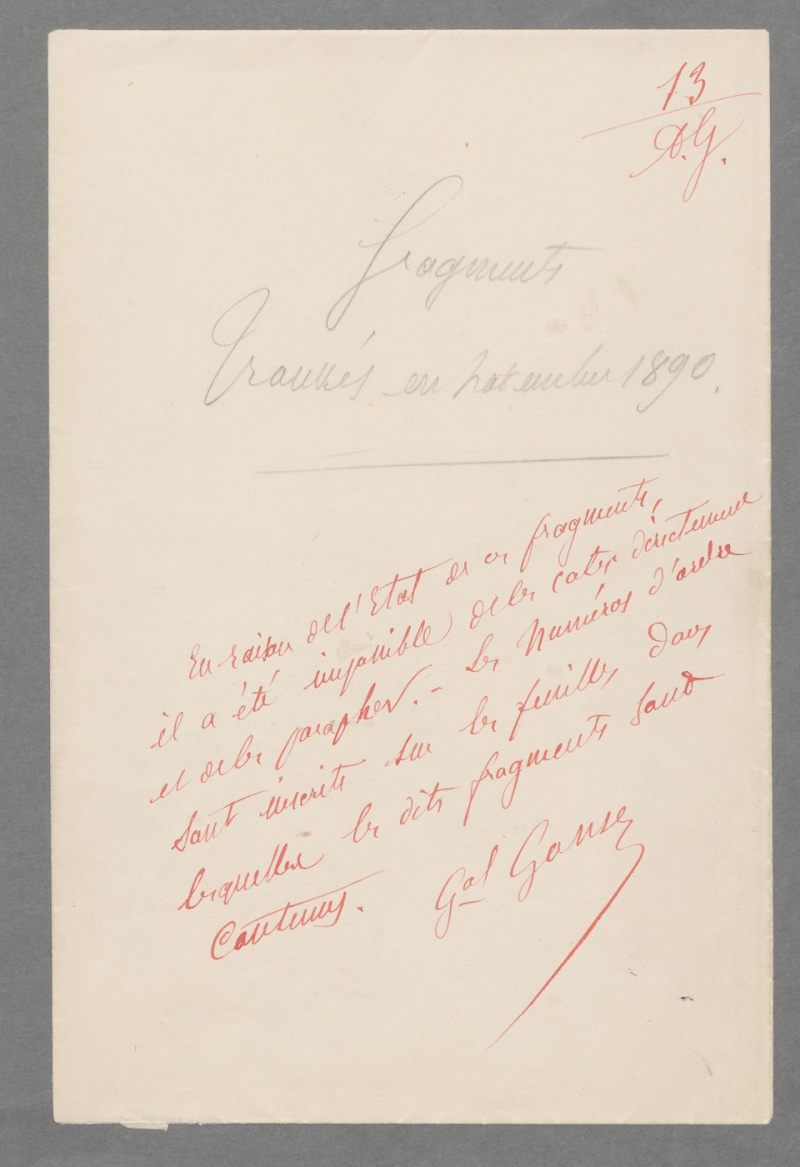 13
A.G.
Fragments
Trouvés en novembre 1890.
En raison de l'Etat de ces fragments,
il a été impossible de les coter directement
et de les parapher. - Les Numéros d'ordre
sont inscrits sur les feuilles dans
lesquelles les dits fragments sont
Contenus. Gal Gonse